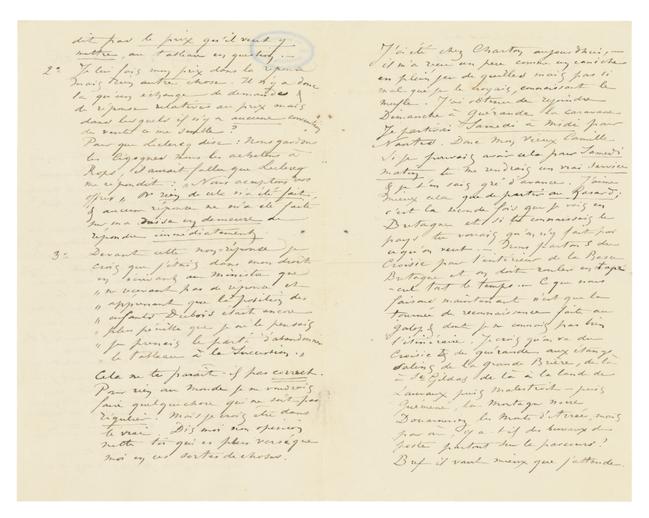 dit pas le prix qu'il veut y
mettre, au tableau en question. —
2° Je lui fais mon prix dans la réponse
mais rien autre chose. Il n'y a donc
là qu'un échange de demandes &
de réponse relatives au prix mais
dans lesquels il n'y a aucune
de vente ce me semble?
Pour que Leclercq dise: Nous gardons
les Cigognes nous les achetons à
Rops, il aurait fallu que Leclercq
me répondit: "Nous acceptons vos
offres" Or rien de cela n'a été fait
& aucune réponse ne m'a été faite
sur ma mise en demeure de
répondre immédiatement.
3° Devant cette non-réponse je
crois que j'étais dans mon droit
en écrivant au ministre que
"ne recevant pas de réponse et
"apprenant que la position des
"enfants Dubois était encore
"plus pénible que je ne le pensais
"je prenais le parti d'abandonner
"le tableau à la Succession."
Cela ne te paraît-il pas correct.
Pour rien au monde je ne voudrais
faire quelque chose qui ne soit pas
régulier. Mais je crois être dans
le vrai. Dis moi ton opinion
nette toi qui es plus versé que
moi en ces sortes de choses.
J'ai été chez Charton aujourd'hui, —
il m'a reçu un peu comme un caniche
en plein jeu de quilles mais pas si
mal que je le croyais, connaissant le
mufle. J'ai obtenu de rejoindre
Dimanche à Guérande la caravane
Je partirai Samedi à midi pour
Nantes. Donc mon vieux Camille
Si je pouvais avoir cela pour Samedi
matin, tu me rendrais un vrai service
& je t'en sais gré d'avance. J'aime
mieux cela que de partir au hasard;
c'est la seconde fois que je vais en
Bretagne et si tu connaissais le
pays tu verrais qu'on n'y fait pas
ce qu'on veut. — Nous partons du
Croisic pour l'intérieur de la Basse
Bretagne et on doit rouler en
tout le temps. — Ce que nous
faisons maintenant n'est que la
tournée de reconnaissance faite au
galop & dont je ne connais pas bien
l'itinéraire. Je crois qu'on va du
Croisic & de Guérande aux étangs
salins de la grande Brière, de là
à St Gildas, de là à la lande de
Lanvaux puis Malestroit — puis
Guémené, la Montagne noire
Douarnenez, les Monts d'Arrée, mais
par où, y a-t-il des bureaux de
poste partout sur le parcours?
Bref il vaut mieux que j'attende.